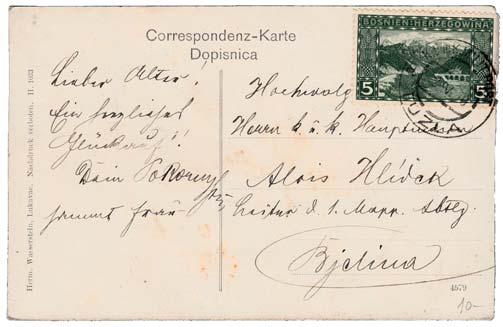 Correspondenz-Karte
Dopisnica
BOSNIEN-HERZEGOWINA
5 5
Lieber Alter!
Ein herzliches
Glückauf!
Dein Pokorny
samt Frau
Herrn k. u. k. Hauptmann
Alois Hlídek
Leiter d. 1. Mapp. Abtlg.
Bjelina
Herm. Wasserstein, Lukavac. Nachdruck verboten. II. 1033
4579
10-